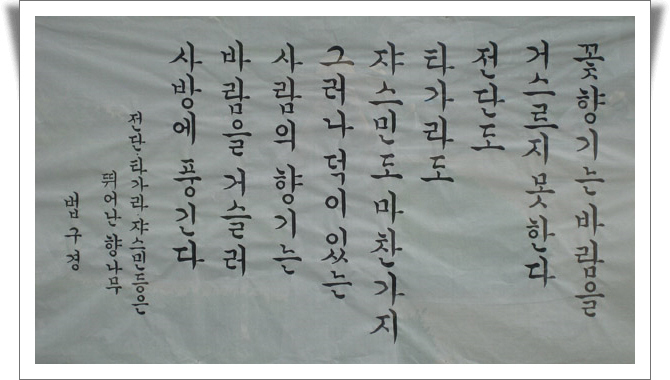 꽃향기는 바람을
거스르지 못한다
전단도
타가라도
쟈스민도 마찬가지
그러나 덕이 있는
사람의 향기는
바람을 거슬러
사방에 풍긴다
전단 타가라 쟈스민등은
뛰어난 향나무
법구경